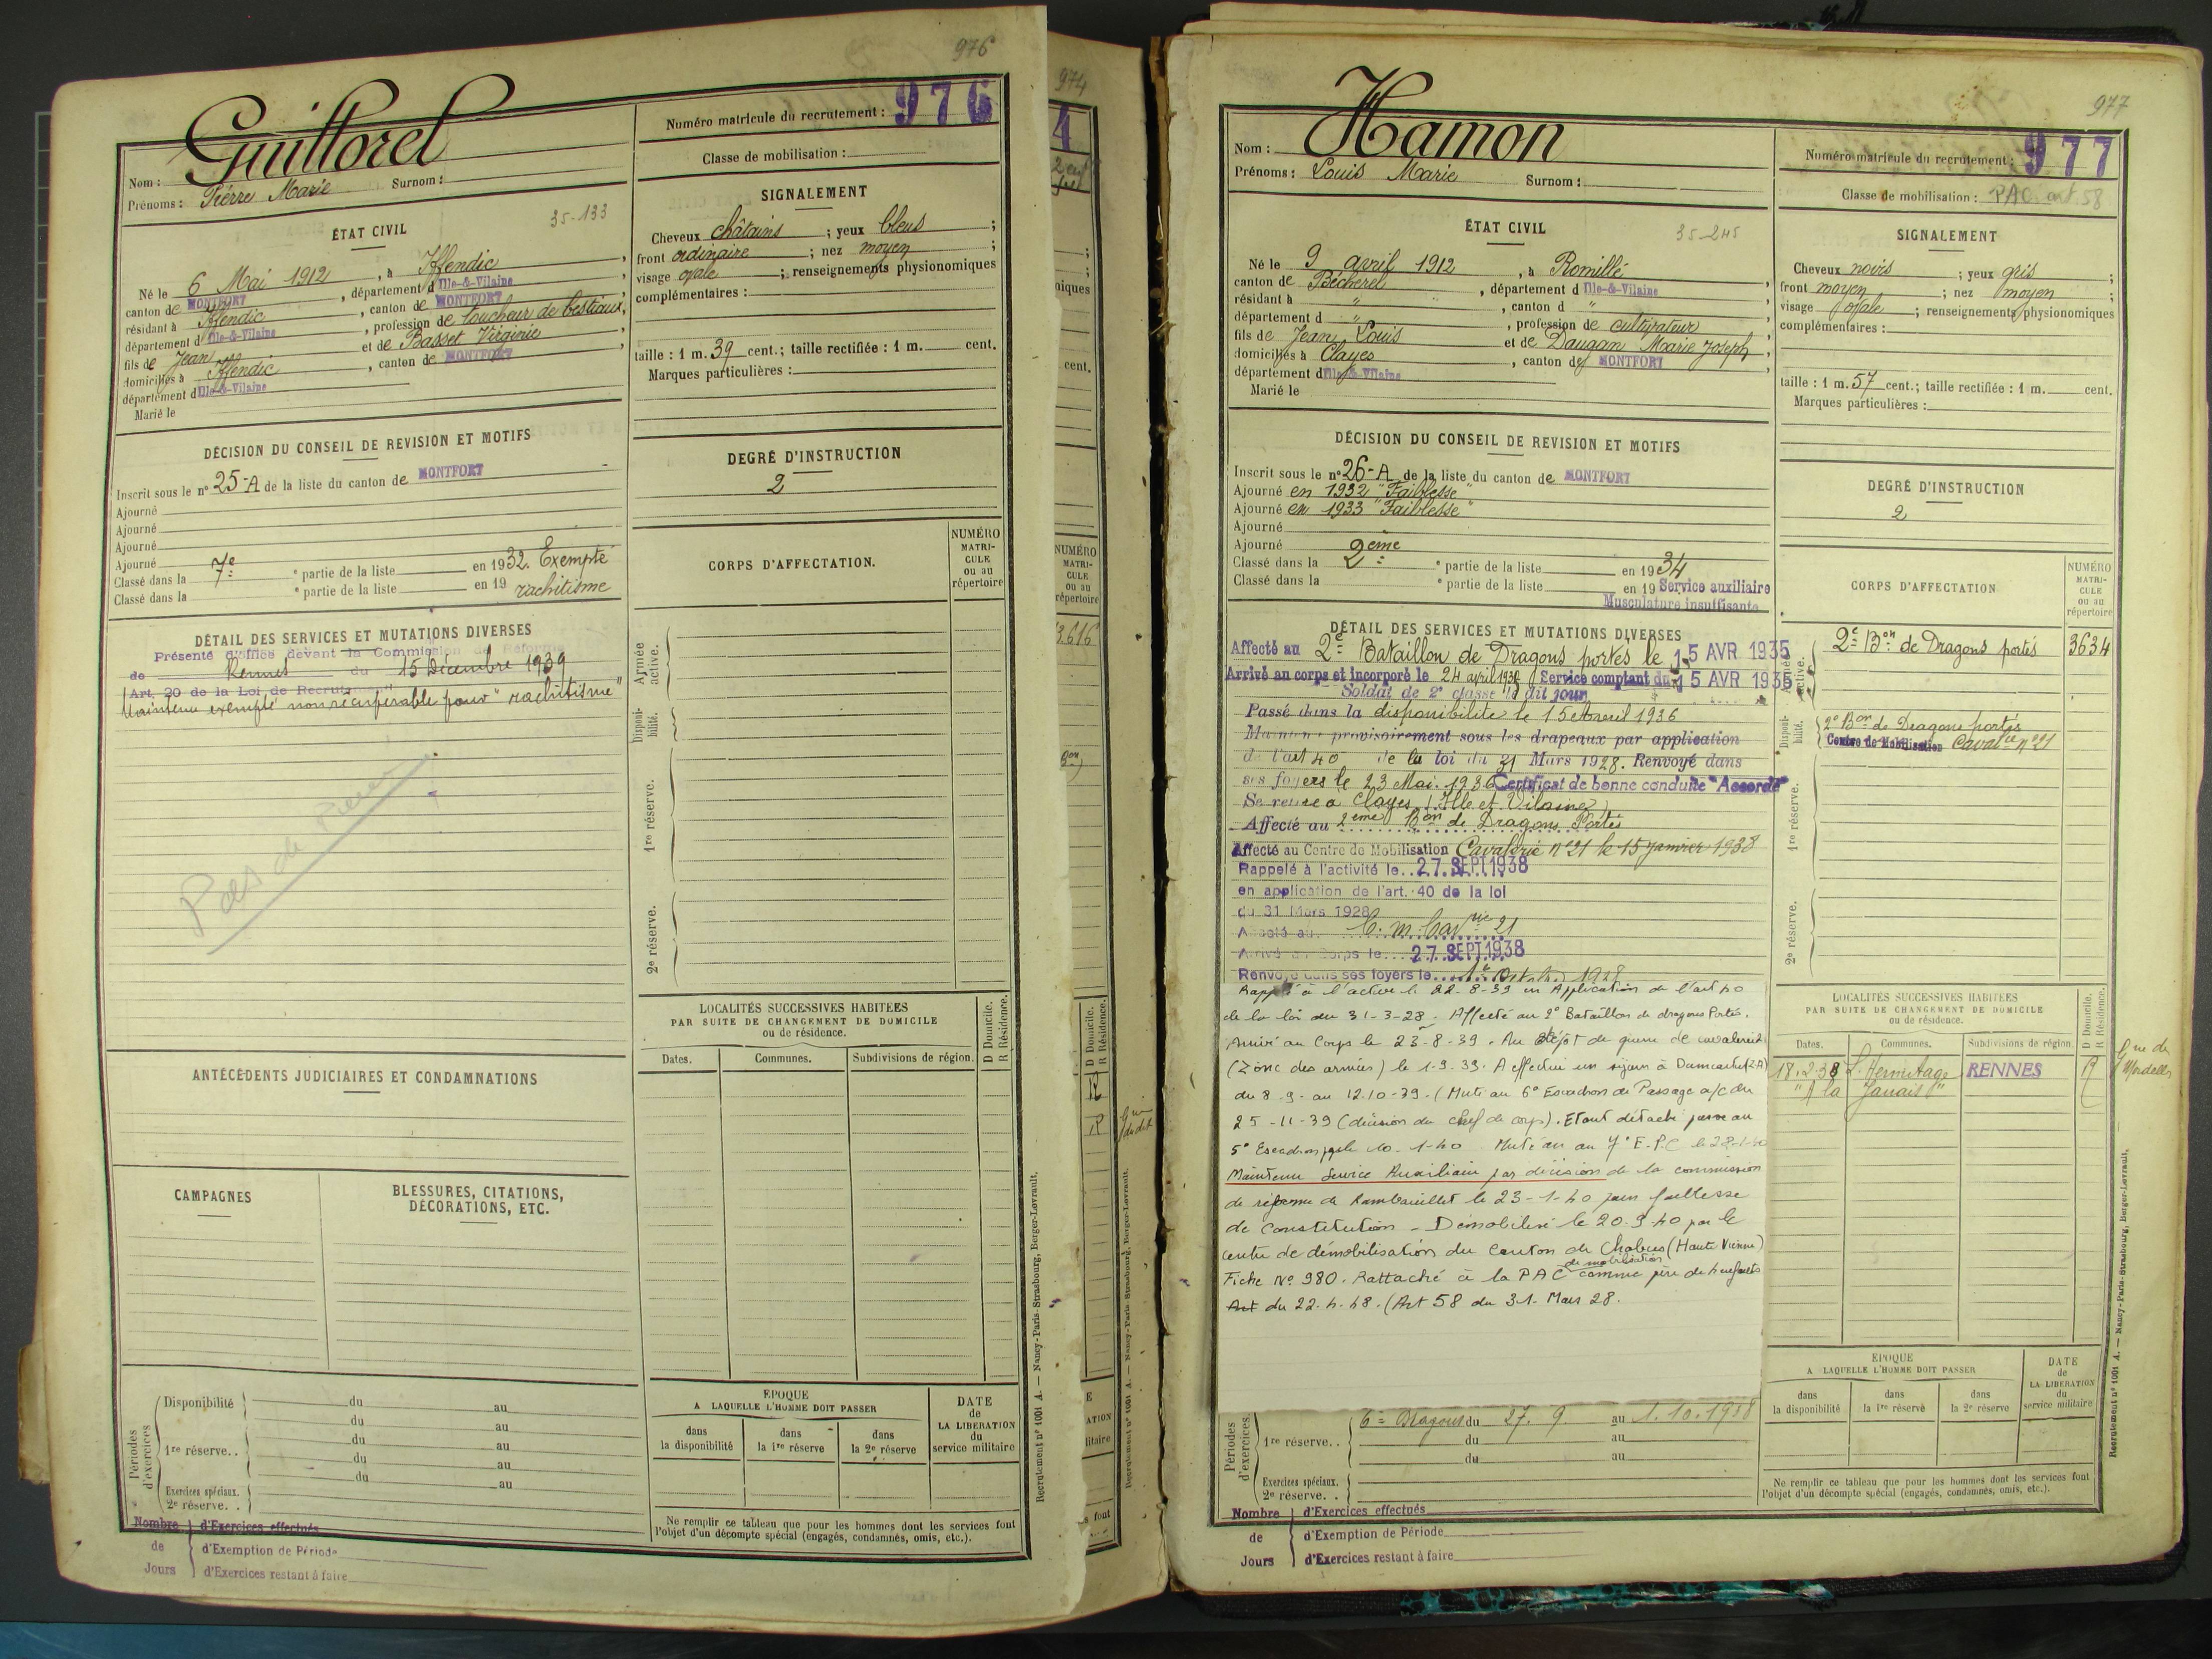 976
Nom : Guillorel
Prénoms : Pierre Marie Surnom :
Numéro matricule du recrutement : 976
Classe de mobilisation :
ÉTAT CIVIL
35-133
Né le 6 Mai 1912, à Iffendic,
canton de MONTFORT, département d'Ille-&-Vilaine
résidant à Iffendic, canton de MONTFORT,
département d'Ille-&-Vilaine, profession de toucheur de bestiaux,
fils de Jean et de Basset Virginie,
domiciliés à Iffendic, canton de MONTFORT,
département d'Ille-&-Vilaine
Marié le
SIGNALEMENT
Cheveux châtains ; yeux bleus ;
front ordinaire ; nez moyen ;
visage ovale ; renseignements physionomiques
complémentaires :
taille : 1 m. 39 cent.; taille rectifiée : 1 m. cent.
Marques particulières :
DÉCISION DU CONSEIL DE REVISION ET MOTIFS
Inscrit sous le n° 25-A de la liste du canton de MONTFORT
Ajourné
Ajourné
Ajourné
Ajourné
Classé dans la 7e e partie de la liste en 1932. Exempté
Classé dans la e partie de la liste en 19 rachitisme
DEGRÉ D'INSTRUCTION
2
DÉTAIL DES SERVICES ET MUTATIONS DIVERSES
Présenté d'office devant la Commission de Réforme
de Rennes du 15 Décembre 1939
(Art. 20 de la Loi de Recrutement
Maintenu exempté non récupérable pour "rachitisme"
Pas de
CORPS D'AFFECTATION.
NUMÉRO MATRI-CULE ou au répertoire
Armée active.
Disponi-bilité.
1re réserve.
2e réserve.
ANTÉCÉDENTS JUDICIAIRES ET CONDAMNATIONS
CAMPAGNES
BLESSURES, CITATIONS, DÉCORATIONS, ETC.
LOCALITÉS SUCCESSIVES HABITÉES
PAR SUITE DE CHANGEMENT DE DOMICILE
ou de résidence.
D Domicile.
R Résidence.
Dates. Communes. Subdivisions de région.
Périodes d'exercices
Disponibilité du au
du au
1re réserve.. du au
du au
du au
Exercices spéciaux.
2e réserve. .
ÉPOQUE
A LAQUELLE L'HOMME DOIT PASSER
dans la disponibilité
dans la 1re réserve
dans la 2e réserve
DATE de LA LIBÉRATION du service militaire
Ne remplir ce tableau que pour les hommes dont les services font
l'objet d'un décompte spécial (engagés, condamnés, omis, etc.).
Nombre d'Exercices effectués
de d'Exemption de Période
Jours d'Exercices restant à faire
Recrutement n° 1001 A. — Nancy-Paris-Strasbourg, Berger-Levrault.
974
4
niques
cent.
NUMÉRO MATRI-CULE ou au répertoire
3616
D Domicile.
R Résidence.
R
R
Recrutement n° 1001 A. — Nancy-Paris-Strasbourg, Berger-Levrault.
977
Nom : Hamon
Prénoms : Louis Marie Surnom :
Numéro matricule du recrutement : 977
Classe de mobilisation : PAC art. 58
ÉTAT CIVIL
35-245
Né le 9 avril 1912, à Romillé
canton de Bécherel, département d'Ille-&-Vilaine
résidant à ", canton d "
département d ", profession de cultivateur,
fils de Jean Louis et de Daugan Marie Joseph,
domiciliés à Clayes, canton de MONTFORT,
département d'Ille-&-Vilaine
Marié le
SIGNALEMENT
Cheveux noirs ; yeux gris ;
front moyen ; nez moyen ;
visage ovale ; renseignements physionomiques
complémentaires :
taille : 1 m. 57 cent.; taille rectifiée : 1 m. cent.
Marques particulières :
DÉCISION DU CONSEIL DE REVISION ET MOTIFS
Inscrit sous le n° 26-A de la liste du canton de MONTFORT
Ajourné en 1932 "Faiblesse"
Ajourné en 1933 "Faiblesse"
Ajourné
Ajourné
Classé dans la 2ème e partie de la liste en 1934
Classé dans la e partie de la liste en 19 Service auxiliaire
Musculature insuffisante
DEGRÉ D'INSTRUCTION
2
DÉTAIL DES SERVICES ET MUTATIONS DIVERSES
Affecté au 2e Bataillon de Dragons portés le 15 AVR 1935
Arrivé au corps et incorporé le 24 avril 1935 Service comptant du 15 AVR 1935
Soldat de 2e classe le dit jour
Passé dans la disponibilité le 15 avril 1936
Maintenu provisoirement sous les drapeaux par application
de l'art 40 de la loi du 31 Mars 1928. Renvoyé dans
ses foyers le 23 Mai 1936 Certificat de bonne conduite "Accordé"
Se retire à Clayes (Ille et Vilaine)
Affecté au 2ème Bon de Dragons Portés
Affecté au Centre de Mobilisation Cavalerie n°21 le 15 janvier 1938
Rappelé à l'activité le 27 SEPT 1938
en application de l'art. 40 de la loi
du 31 Mars 1928
Affecté au C. m. Cavrie 21
Arrivé au Corps le 27 SEPT 1938
Renvoyé dans ses foyers le 1er Octobre 1938
Rappelé à l'active le 22-8-39 en Application de l'art 40
de la loi du 31-3-28. Affecté au 2e Bataillon de dragons Portés.
Arrivé au Corps le 23-8-39. Au Dépôt de guerre de cavalerie
(Zone des armées) le 1-9-39. A effectué un séjour à (ZA)
du 8-9- au 12-10-39. (Muté au 6e Escadron de Passage a/c du
25-11-39 (décision du chef de corps). Etant détaché passe au
5e Escadron le 10-1-40 Muté au 7e E.P.C le 28-1-40
Maintenu Service Auxiliaire par décision de la commission
de réforme de Rambouillet le 23-1-40 pour faiblesse
de Constitution - Démobilisé le 20-9-40 par le
centre de démobilisation du Canton de Chalus (Haute Vienne)
de mobilisation
Fiche N° 980. Rattaché à la PAC comme père de 4 enfants
Art du 22-4-48. (Art 58 du 31-Mars 28.
CORPS D'AFFECTATION
NUMÉRO MATRI-CULE ou au répertoire
Armée active.
2e Bon de Dragons portés 3634
Disponi-bilité.
2e Bon de Dragons portés
Centre de Mobilisation Cavalie n°21
1re réserve.
2e réserve.
LOCALITÉS SUCCESSIVES HABITÉES
PAR SUITE DE CHANGEMENT DE DOMICILE
ou de résidence.
D Domicile.
R Résidence.
Dates. Communes. Subdivisions de région.
18.2.38 L'Hermitage RENNES R rue de Mordelles
" A la Janais "
Périodes d'exercices
6e Dragons du 27. 9 au 1.10.1938
1re réserve.. du au
du au
Exercices spéciaux.
2e réserve. .
ÉPOQUE
A LAQUELLE L'HOMME DOIT PASSER
dans la disponibilité
dans la 1re réserve
dans la 2e réserve
DATE de LA LIBÉRATION du service militaire
Ne remplir ce tableau que pour les hommes dont les services font
l'objet d'un décompte spécial (engagés, condamnés, omis, etc.).
Nombre d'Exercices effectués
de d'Exemption de Période
Jours d'Exercices restant à faire
Recrutement n° 1001 A. — Nancy-Paris-Strasbourg, Berger-Levrault.